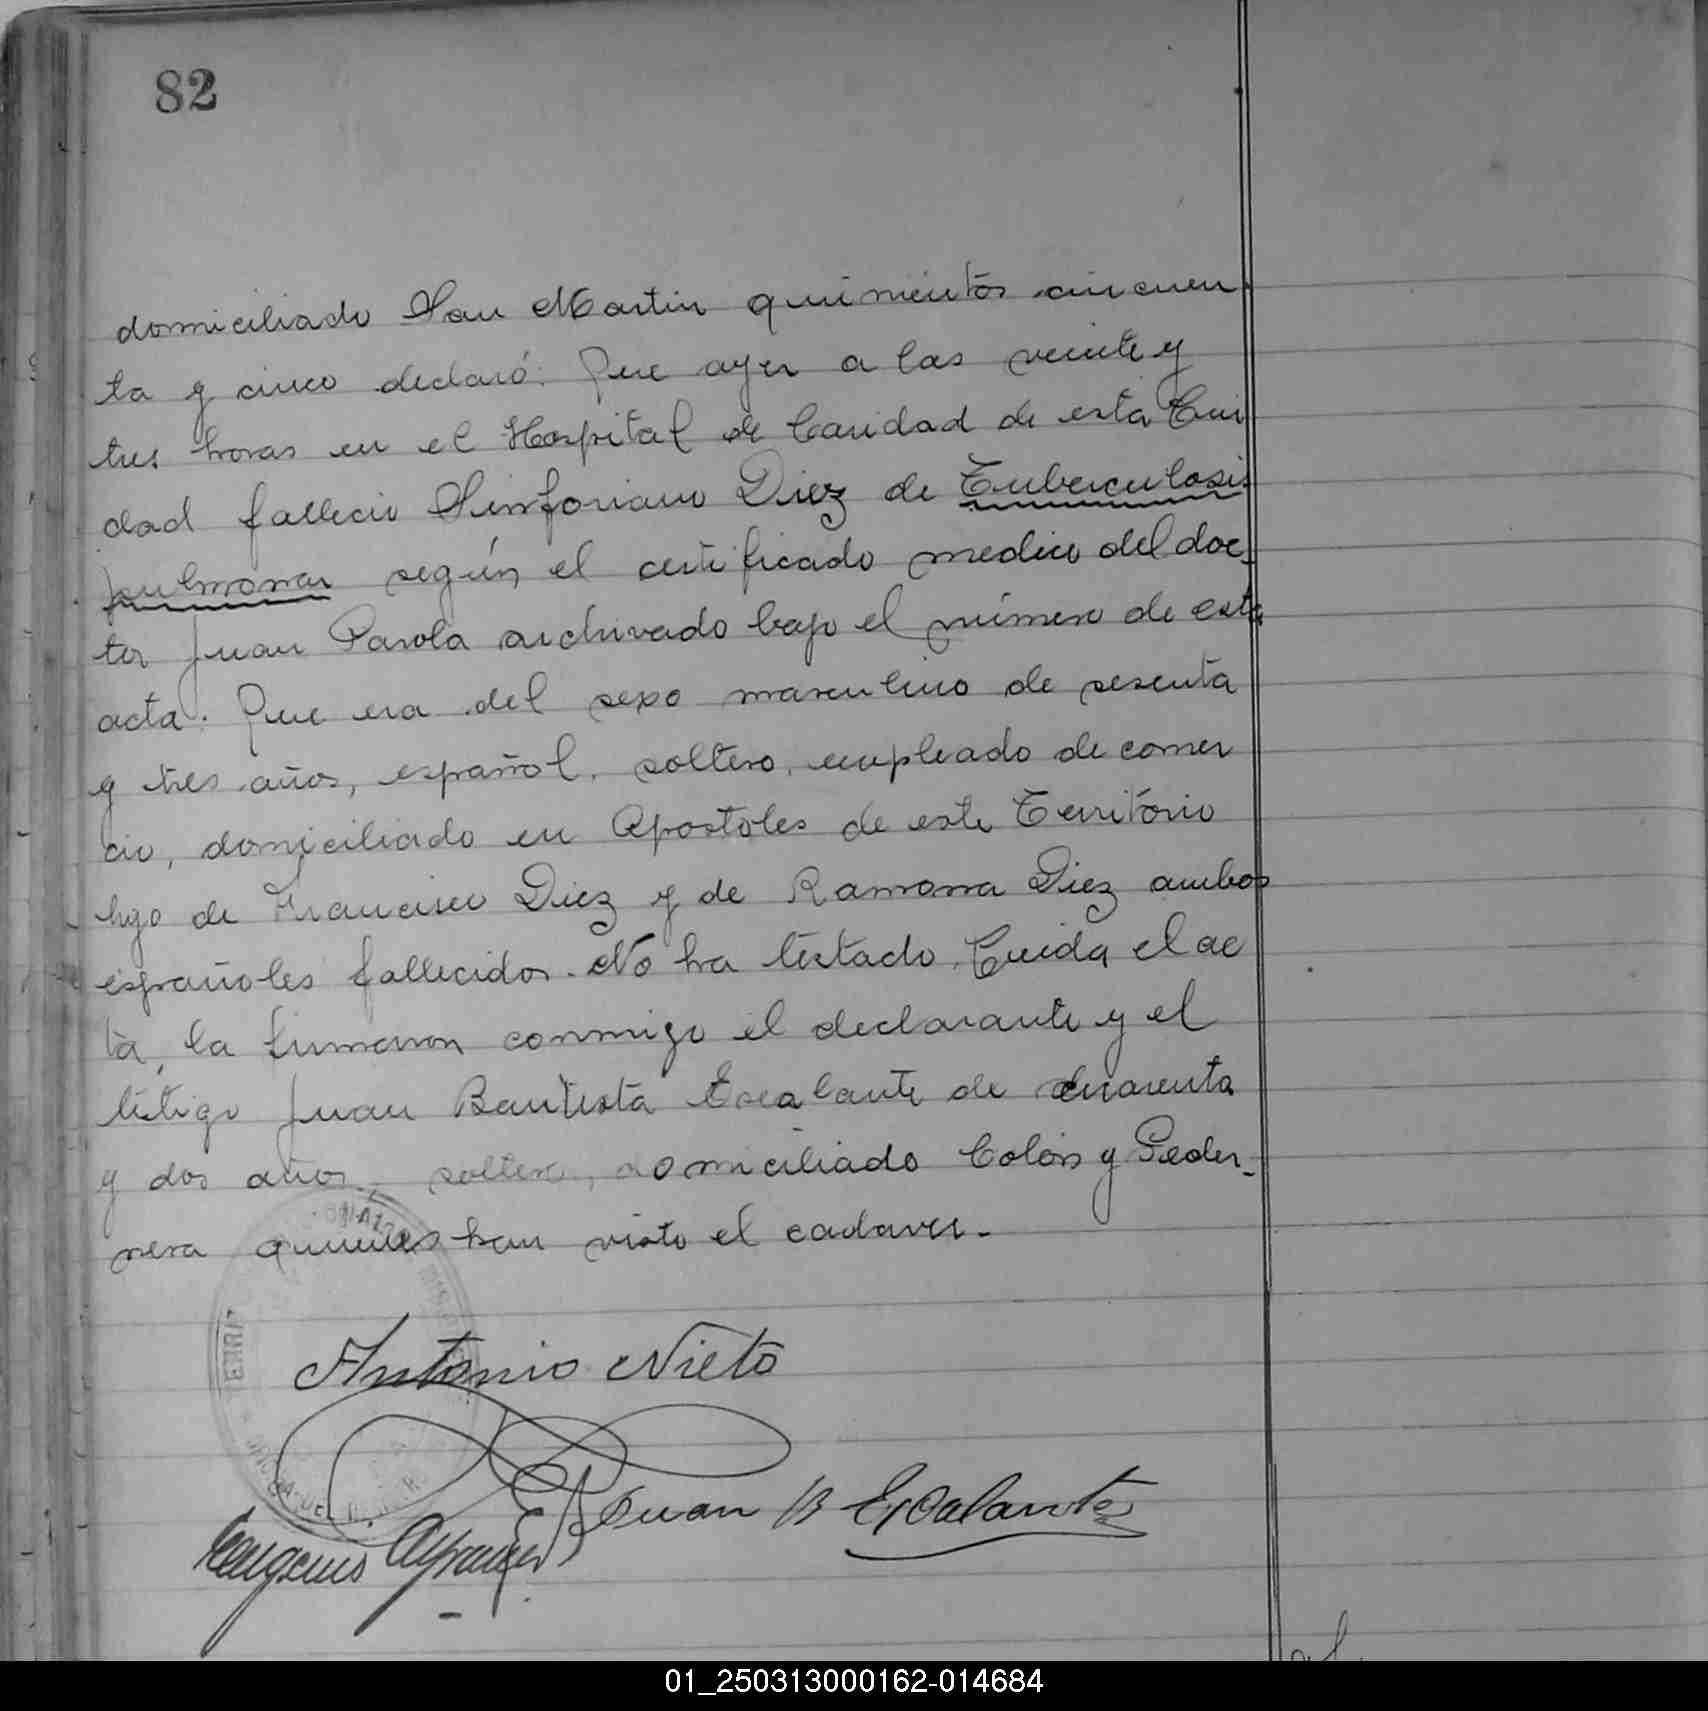 82
domiciliado San Martin quinientos cincuen
ta y cinco declaró: Que ayer a las veinte y
tres horas en el Hospital de Caridad de esta Ciu
dad fallecio Sinforiano Diez de Tuberculosis
pulmonar según el certificado medico del doc
tor Juan Parola archivado bajo el número de esta
acta. Que era del sexo masculino de sesenta
y tres años, español, soltero, empleado de comer
cio, domiciliado en Apostoles de este Territorio
hijo de Francisco Diez y de Ramona Diez ambos
españoles fallecidos. No ha testado. Leida el ac
ta, la firmaron conmigo el declarante y el
testigo Juan Bautista Escalante de cuarenta
y dos años, soltero, domiciliado Colón y Peder_
nera quienes han visto el cadaver._
TERRIT
Antonio Nieto
Juan B Escalante
Eugenio
01_250313000162-014684